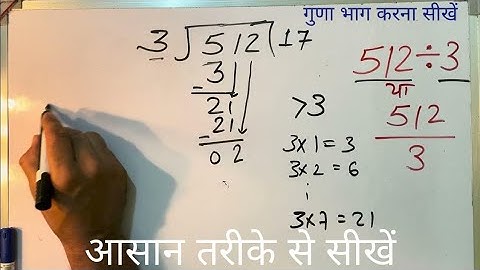 गुणा भाग करना सीखें
3 ) 512 ( 17
- 3
21
- 21
02
>3
3x1=3
3x2=6
3x7=21
512÷3
या
512
3
आसान तरीके से सीखें